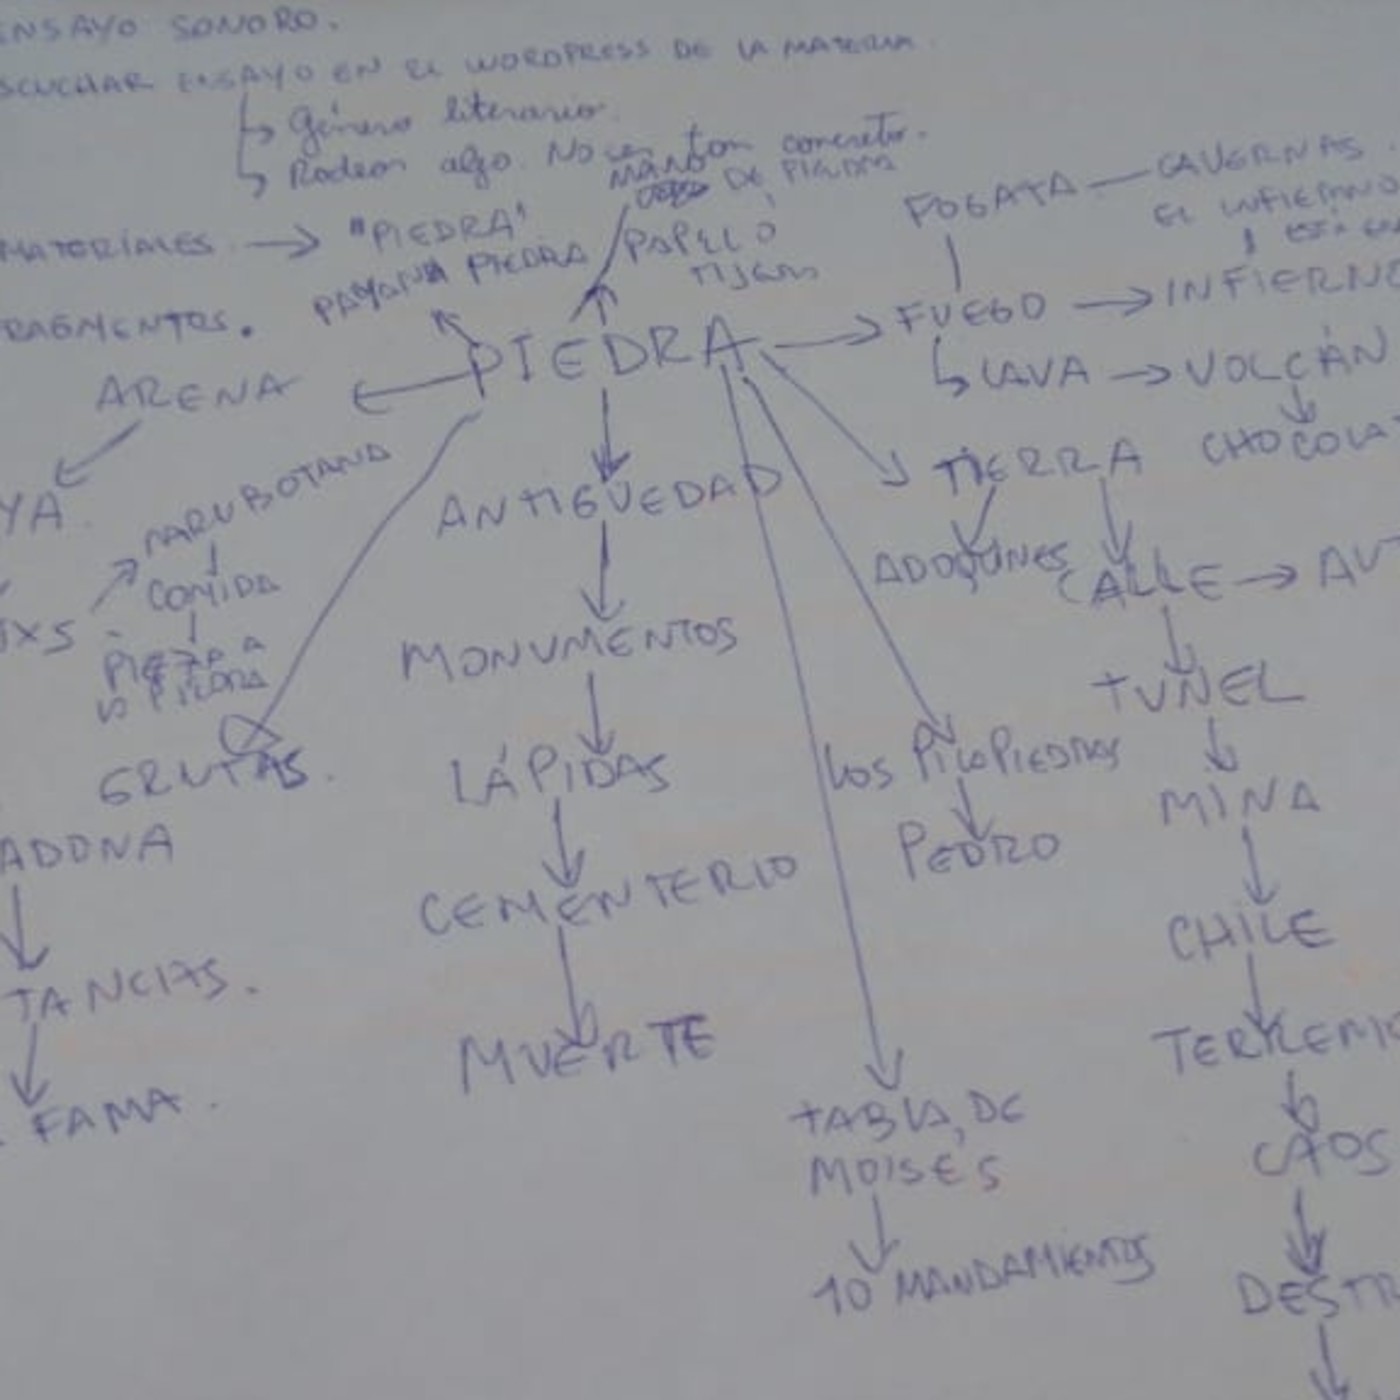 ENSAYO SONORO.
ESCUCHAR ENSAYO EN EL WORDPRESS DE LA MATERIA.
Género literario.
Rodear algo. No es tan concreto.
MANO DE PIEDRA
MATERIALES → "PIEDRA"
PAPEL O
TIJERA
PAYANA PIEDRA
FRAGMENTOS.
FOGATA — CAVERNAS.
EL INFIERNO
FUEGO → INFIERNO
LAVA → VOLCÁN
CHOCOLAT
PIEDRA
ARENA
YA.
TIERRA
ADOQUINES
CALLE → AUT
ANTIGUEDAD
MARUBOTANA
COMIDA
PIEZA A
PIEDRA
IXS
MONUMENTOS
TUNEL
GRUTAS.
LÁPIDAS
LOS PICAPIEDRAS
MINA
ADONA
PEDRO
CEMENTERIO
CHILE
TANCIAS.
MUERTE
TERREMO
FAMA.
TABLA DE
MOISES
CAOS
10 MANDAMIENTOS
DESTR